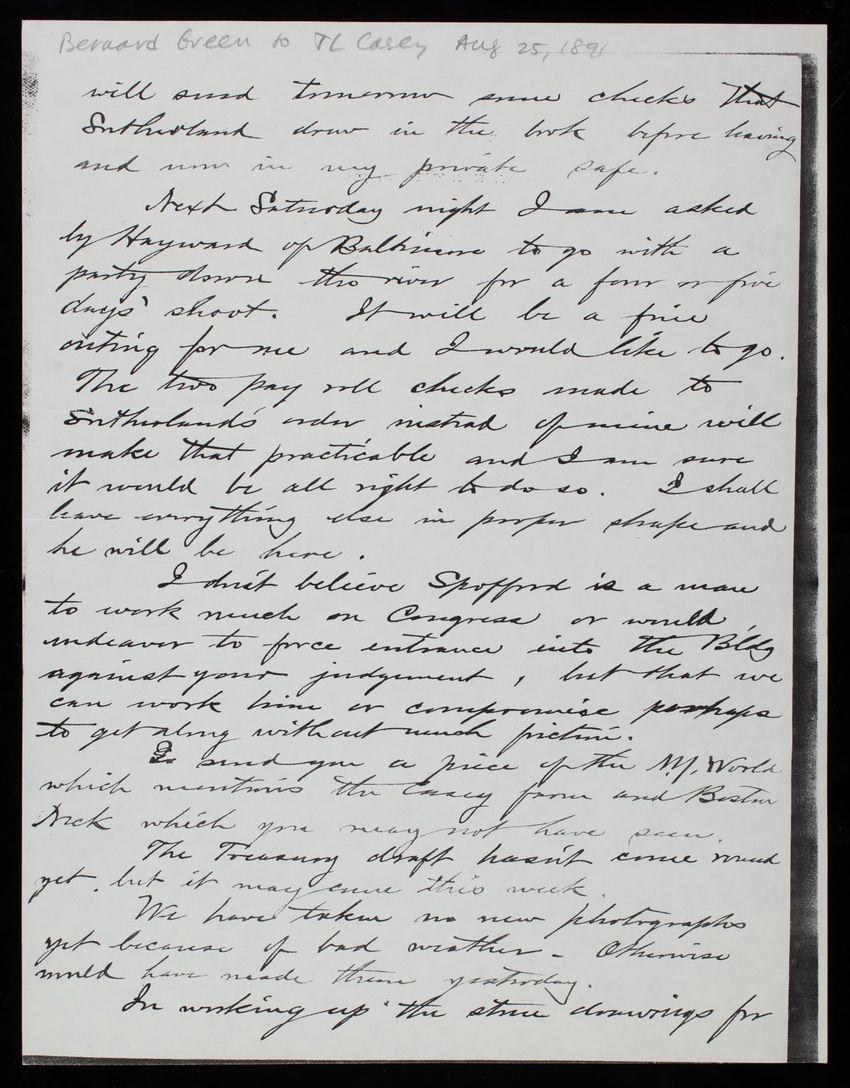 Bernard Green to TL Casey Aug 25, 1891
will send tomorrow some checks that
Sutherland drew in the book before leaving
and now in my private safe.
Next Saturday night I am asked
by Hayward of Baltimore to go with a
party down the river for a four or five
days' shoot. It will be a fine
outing for me and I would like to go.
The two pay roll checks made to
Sutherland's order instead of mine will
make that practicable and I am sure
it would be all right to do so. I shall
leave everything else in proper shape and
he will be here.
I don't believe Spofford is a man
to work much on Congress or would
endeavor to force entrance into the Bldg
against your judgement, but that we
can work him or compromise perhaps
to get along without much friction.
I send you a piece of the N.Y. World
which mentions the Casey farm and Boston
Neck which you may not have seen.
The Treasury draft hasn't come round
yet, but it may come this week.
We have taken no new photographs
yet because of bad weather - Otherwise
would have made them yesterday.
In working up the stone drawings for